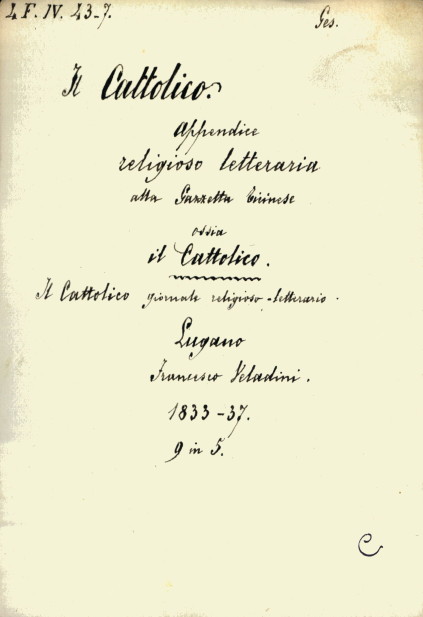 4 F. IV. 43-7. Ges.
Il Cattolico.
Appendice
religioso letteraria
alla Gazzetta ticinese
ossia
il Cattolico.
Il Cattolico giornale religioso-letterario.
Lugano
Francesco Veladini.
1833-37.
9 in 5.
C